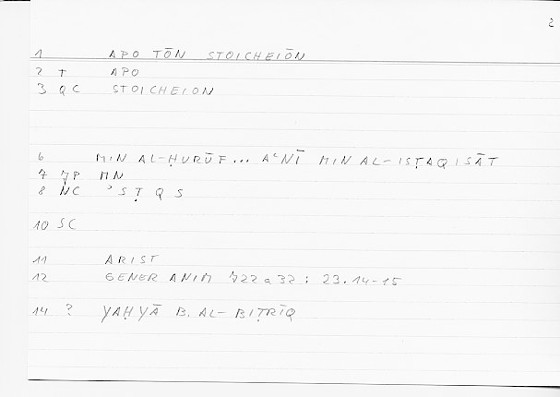 2
1 APO TŌN STOICHEIŌN
2 T APO
3 QC STOICHEION
6 MIN AL-ḤURŪF... AʿNĪ MIN AL-ISṬAQISĀT
7 MN
8 NC ʾSṬQS
10 SC
11 ARIST
12 GENER ANIM 722a32 : 23.14-15
14 ? YAḤYĀ B. AL-BIṬRĪQ